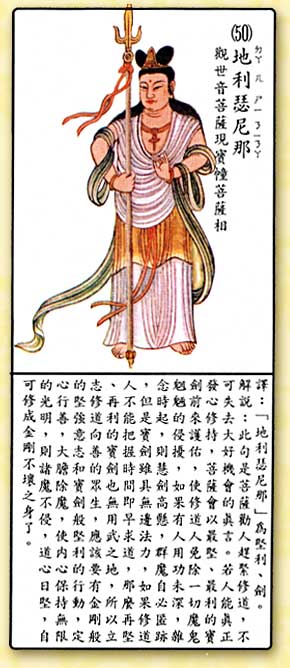 (50)地利瑟尼那
觀世音菩薩現寶幢菩薩相
譯：「地利瑟尼那」為堅利、劍。
解說：此句是菩薩勸人趕緊修道，不
可失去大好機會的真言。若人能真正
發心修持，菩薩會以最堅、最利的寶
劍前來護佑，使修道人免除一切魔鬼
魍魎的侵擾，如果有人用功未深，雜
念時起，則慧劍高懸，群魔自必匿跡
，但是寶劍雖具無邊法力，如果修道
人不能把握時間即早求道，那麼再堅
、再利的寶劍也無用武之地，所以立
志修道向善的眾生，應該要有金剛般
的堅強意志和寶劍般堅利的行動，定
心行善，大膽除魔，使內心保持無限
的光明，則諸魔不侵，道心日堅，自
可修成金剛不壞之身了。